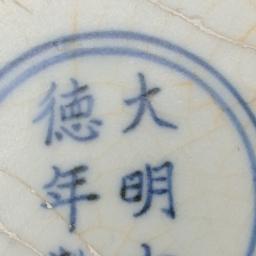 大明
德年